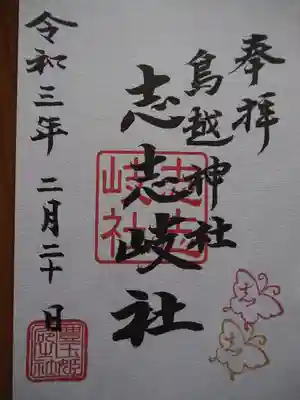 奉拝
鳥越神社
志志岐社
志志岐社
令和三年 二月二十日
志
志